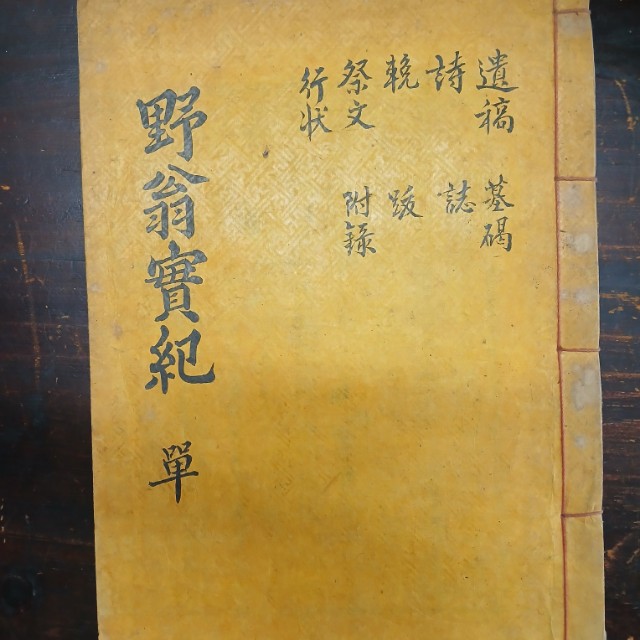 遺稿
詩
輓
祭文
行狀
墓碣
誌
跋
附錄
野翁實紀 單